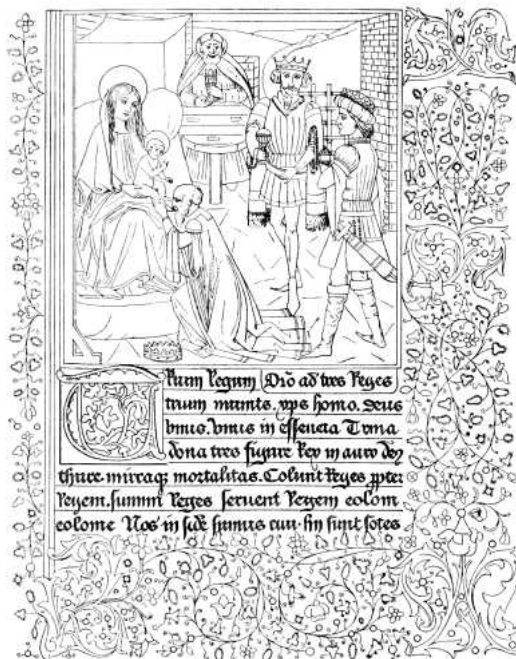 TRium Regum Orō ad tres Reges
trium munus. xps homo. Deus
vnus. vnus in essencia Trina
dona tres signre Rex in auro
thure. mirraqz mortalitas. Colunt Reges ppter
Regem. summi Reges seruent Regem colom
colome Nos in fide sumus sunt